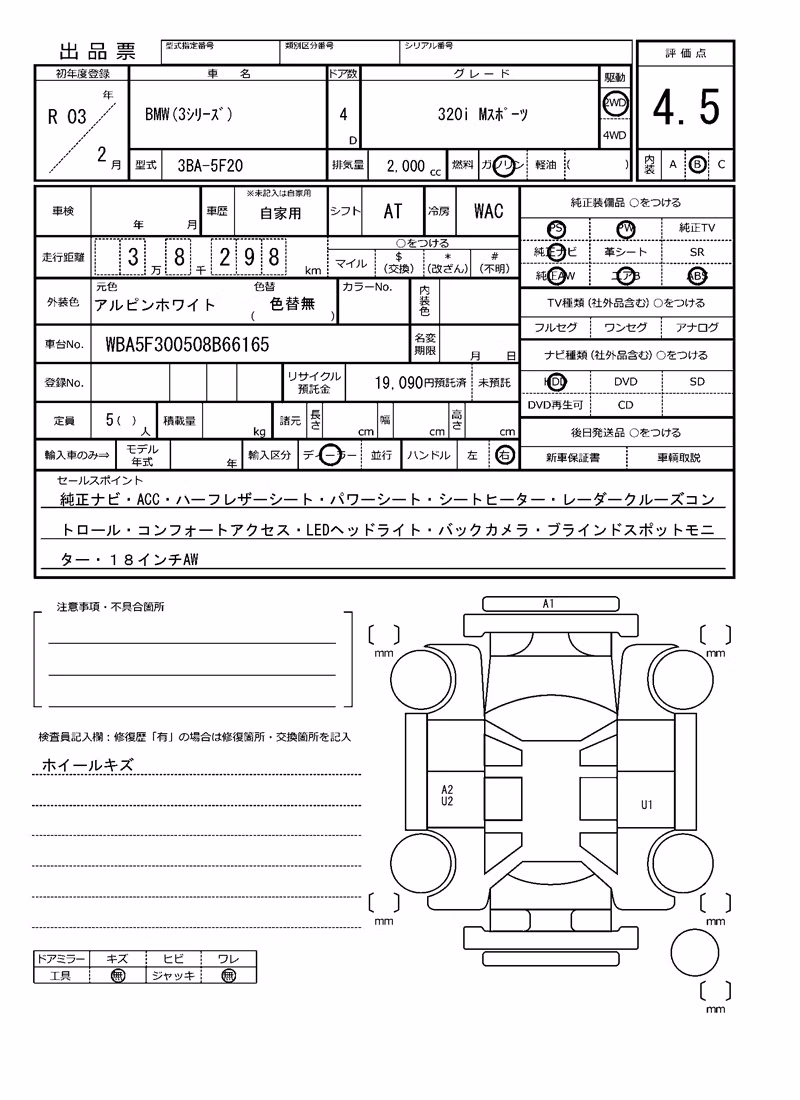 出品票 型式指定番号 類別区分番号 シリアル番号 評価点
初年度登録 車名 ドア数 グレード 駆動
R 03 年 2 月 BMW(3シリーズ) 4 D 320i Mスポーツ 2WD 4WD 4.5
型式 3BA-5F20 排気量 2,000 cc 燃料 ガソリン 軽油 ( ) 内装 A B C
車検 年 月 車歴 ※未記入は自家用 自家用 シフト AT 冷房 WAC
走行距離 3 万 8 千 2 9 8 km ○をつける マイル $ (交換) * (改ざん) # (不明)
外装色 元色 アルピンホワイト 色替 ( 色替無 ) カラーNo. 内装色
車台No. WBA5F300508B66165 名変期限 月 日
登録No. リサイクル預託金 19,090円預託済 未預託
定員 5( ) 人 積載量 kg 諸元 長さ cm 幅 cm 高さ cm
輸入車のみ⇒ モデル年式 年 輸入区分 ディーラー 並行 ハンドル 左 右
純正装備品 ○をつける
PS PW 純正TV
純正ナビ 革シート SR
純正AW エアB ABS
TV種類(社外品含む)○をつける
フルセグ ワンセグ アナログ
ナビ種類(社外品含む)○をつける
HDD DVD SD
DVD再生可 CD
後日発送品 ○をつける
新車保証書 車輌取説
セールスポイント
純正ナビ・ACC・ハーフレザーシート・パワーシート・シートヒーター・レーダークルーズコン
トロール・コンフォートアクセス・LEDヘッドライト・バックカメラ・ブラインドスポットモニ
ター・１８インチAW
注意事項・不具合箇所
検査員記入欄：修復歴「有」の場合は修復箇所・交換箇所を記入
ホイールキズ
ドアミラー キズ ヒビ ワレ
工具 無 ジャッキ 無
A1
mm mm
A2
U2
U1
mm mm
mm